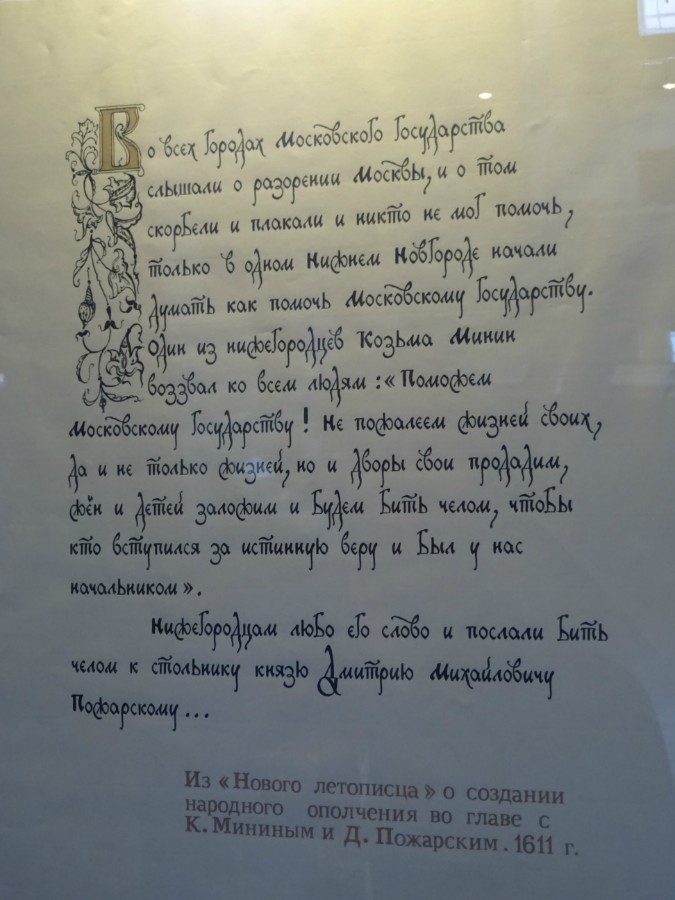 Во всех городах Московского Государства
слышали о разорении Москвы, и о том
скорбели и плакали и никто не мог помочь,
только в одном Нижнем Новгороде начали
думать как помочь Московскому Государству.
Один из нижегородцев Козьма Минин
воззвал ко всем людям: «Поможем
Московскому Государству! Не пожалеем жизней своих,
да и не только жизней, но и дворы свои продадим,
жён и детей заложим и будем бить челом, чтобы
кто вступился за истинную веру и был у нас
начальником».
Нижегородцам любо его слово и послали бить
челом к стольнику князю Дмитрию Михайловичу
Пожарскому...
Из «Нового летописца» о создании
народного ополчения во главе с
К. Мининым и Д. Пожарским. 1611 г.